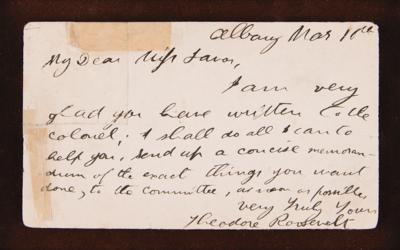 Albany Mar 10th
My Dear Miss
I am very
glad you have written to the
colonel; I shall do all I can to
help you, Send up a concise memoran-
dum of the exact things you want
done, to the committee, as soon as possible
Very Truly Yours
Theodore Roosevelt